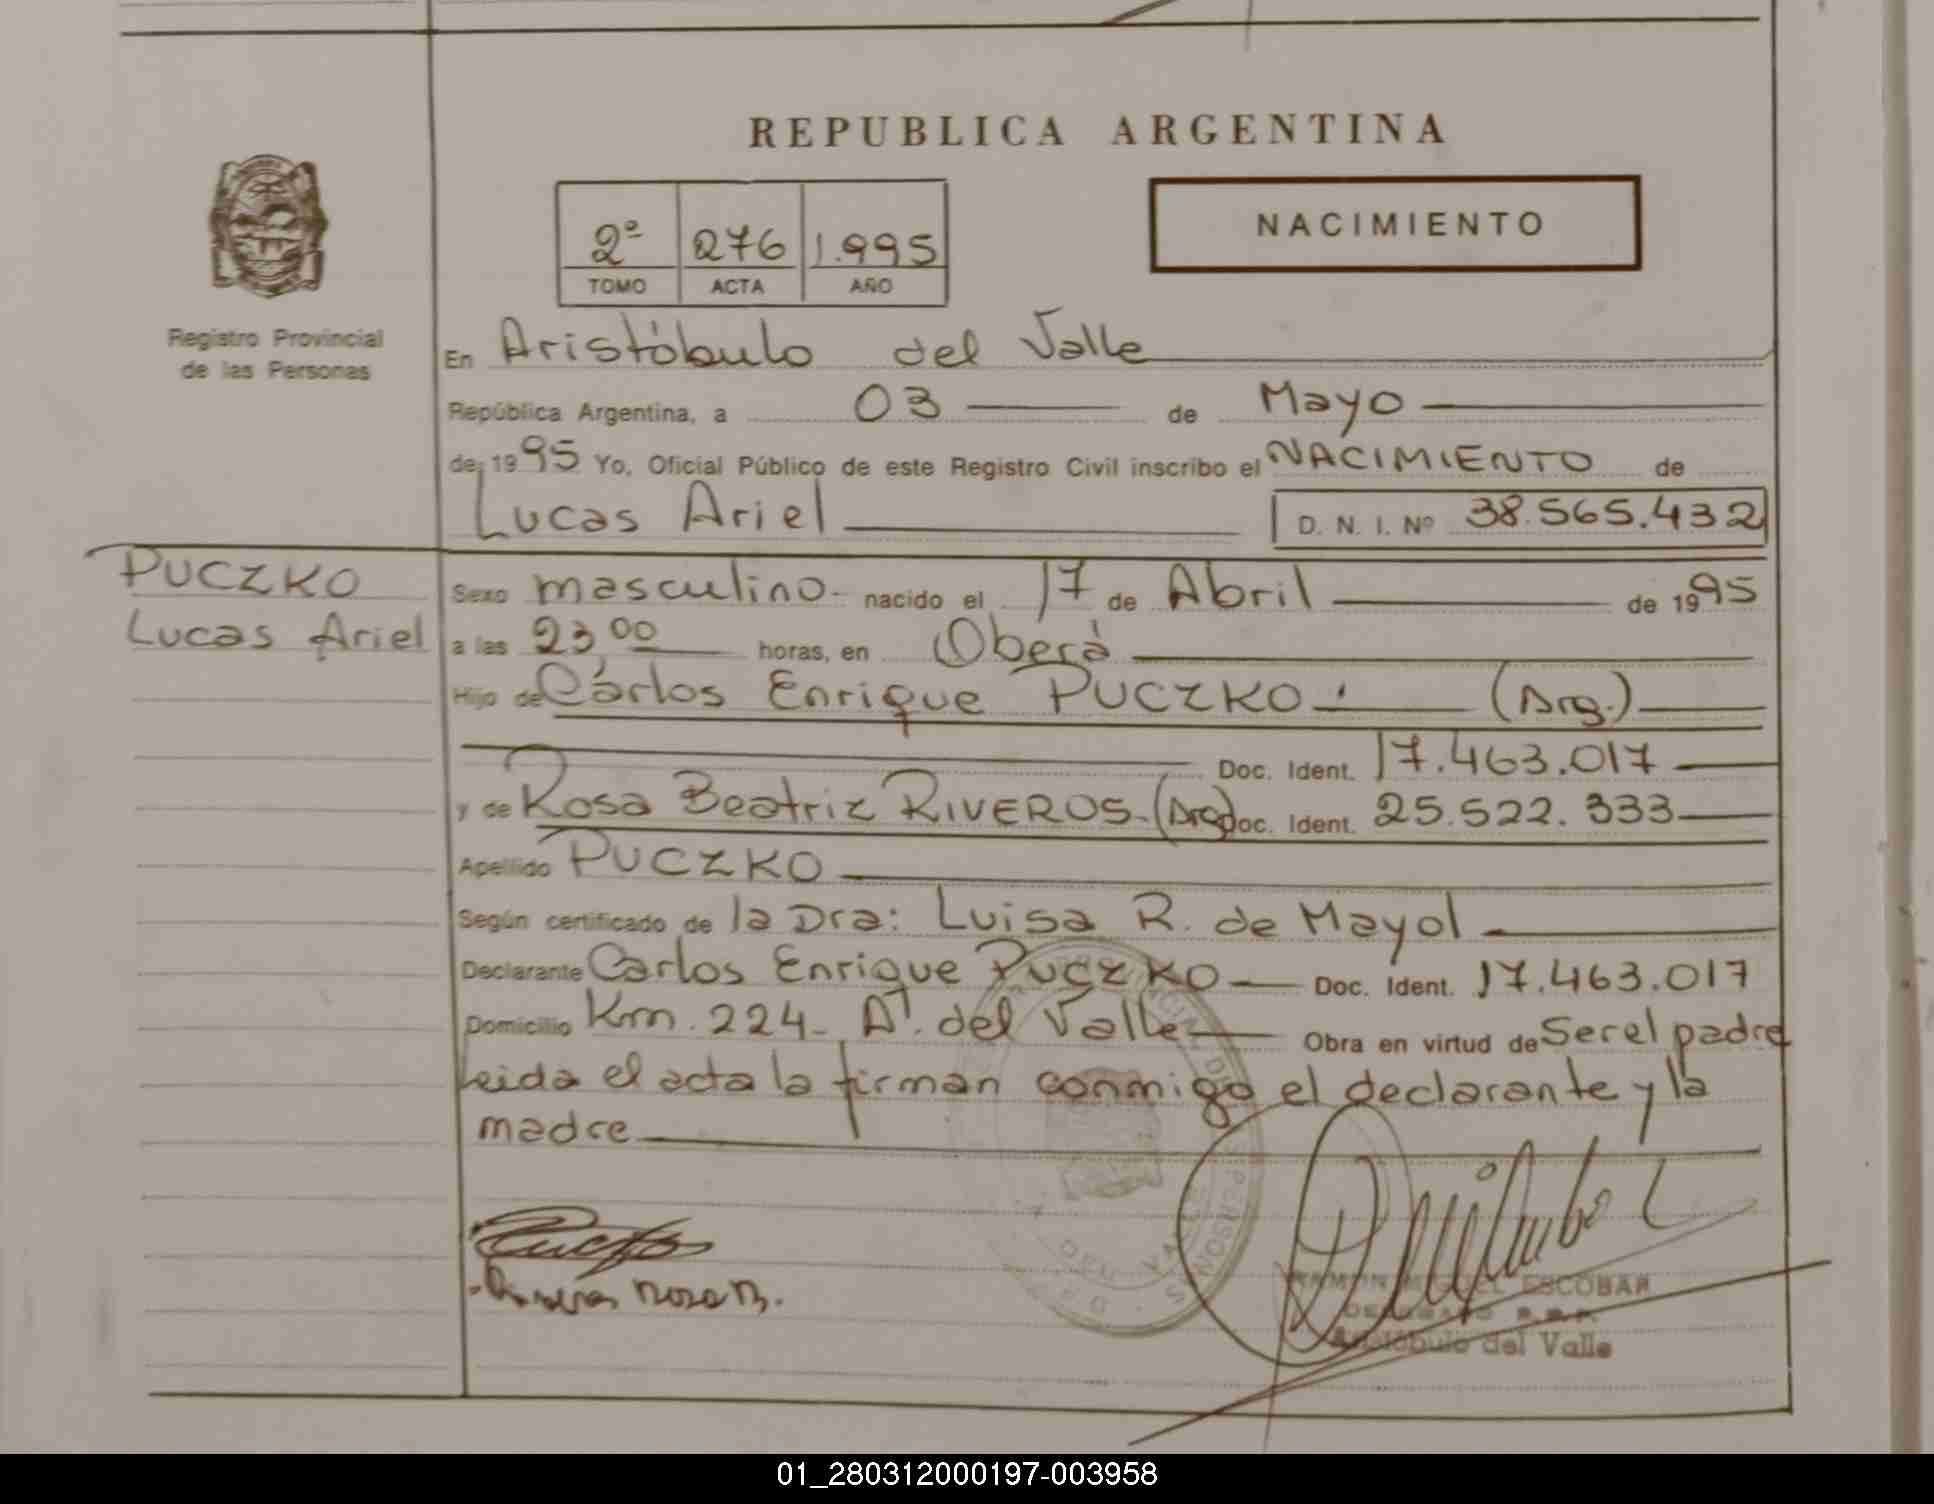 REPUBLICA ARGENTINA
2º 276 1.995
TOMO ACTA AÑO
NACIMIENTO
Registro Provincial
de las Personas
En Aristóbulo del Valle
República Argentina, a 03 de Mayo
de 1995 Yo, Oficial Público de este Registro Civil inscribo el NACIMIENTO de
Lucas Ariel D. N. I. Nº 38.565.432
PUCZKO
Lucas Ariel
Sexo masculino nacido el 17 de Abril de 1995
a las 23 00 horas, en Oberá
Hijo de Carlos Enrique PUCZKO. (Arg.)
Doc. Ident. 17.463.017
y de Rosa Beatriz RIVEROS. (Arg) Doc. Ident. 25.522.333
Apellido PUCZKO
Según certificado de la Dra: Luisa R. de Mayol
Declarante Carlos Enrique PUCZKO Doc. Ident. 17.463.017
Domicilio Km. 224 - A. del Valle Obra en virtud de Ser el padre
Leida el acta la firman conmigo el declarante y la
madre
RAMON MIGUEL ESCOBAR
Aristóbulo del Valle
01_280312000197-003958